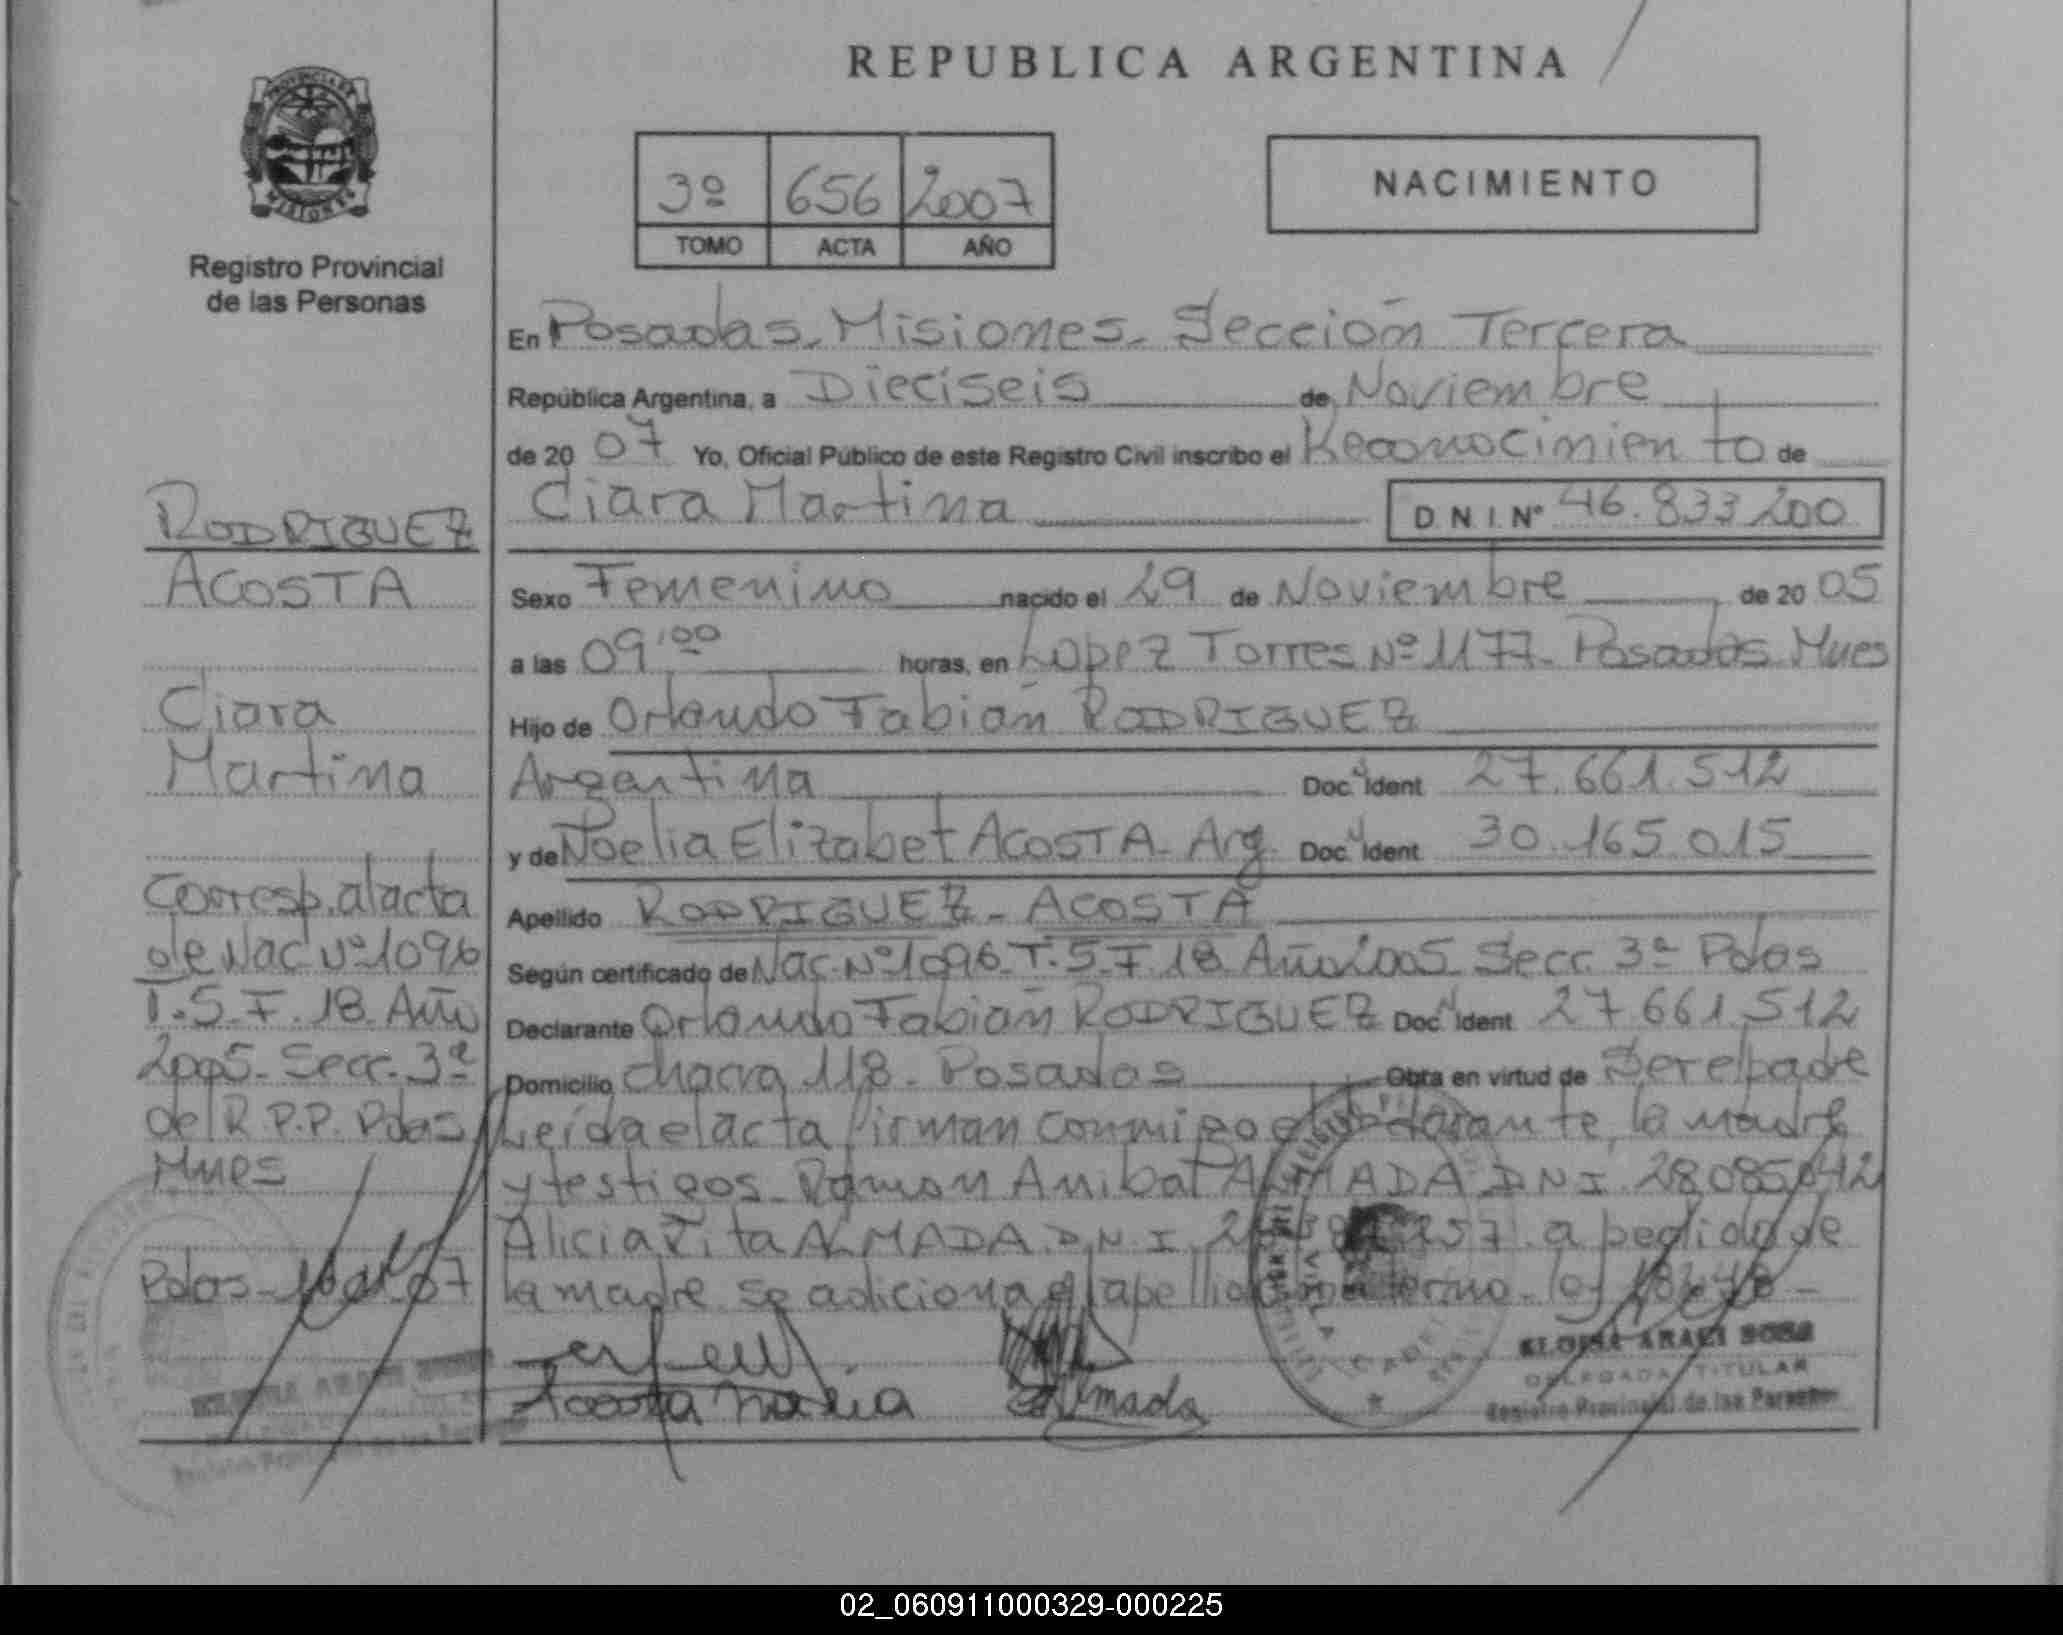 REPUBLICA ARGENTINA
PROVINCIA DE
MISIONES
Registro Provincial
de las Personas
3º 656 2007
TOMO ACTA AÑO
NACIMIENTO
En Posadas. Misiones. Sección Tercera
República Argentina, a Dieciseis de Noviembre
de 20 07 Yo, Oficial Público de este Registro Civil inscribo el Reconocimiento de
Ciara Martina D.N.I. Nº 46.833.200
Sexo Femenino nacido el 29 de Noviembre de 20 05
a las 09:00 horas, en Lopez Torres Nº 1177. Posadas Mnes
Hijo de Orlando Fabián RODRIGUEZ
Argentina Doc. Ident 27.661.512
y de Noelia Elizabet ACOSTA. Arg. Doc. Ident 30.165.015
Apellido RODRIGUEZ - ACOSTA
Según certificado de Nac. Nº 1096. T. 5. F. 18. Año 2005. Secc. 3ª Pdas
Declarante Orlando Fabián RODRIGUEZ Doc. Ident 27 661.512
Domicilio chacra 118. Posadas Obra en virtud de Ser el padre
Leída el acta firman conmigo el declarante, la madre
y testigos. Ramon Anibal ALMADA D.N.I. 28.085.042
Alicia Rita ALMADA. D.N.I. a pedido de
la madre se adiciona el apellido materno. ley 18248 -
Acosta Noelia Almada
ELOISA ARACI SOSA
DELEGADA TITULAR
Registro Provincial de las Personas
RODRIGUEZ
ACOSTA
Ciara
Martina
Corresp. al acta
de Nac Nº 1096
T. 5. F. 18. Año
2005. Secc. 3ª
del R.P.P. Pdas
Mnes
Pdas 07
Registro Provincial de las Personas
02_060911000329-000225